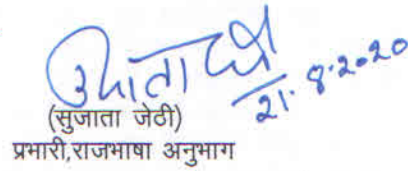 21.8.2020
(सुजाता जेठी)
प्रभारी,राजभाषा अनुभाग